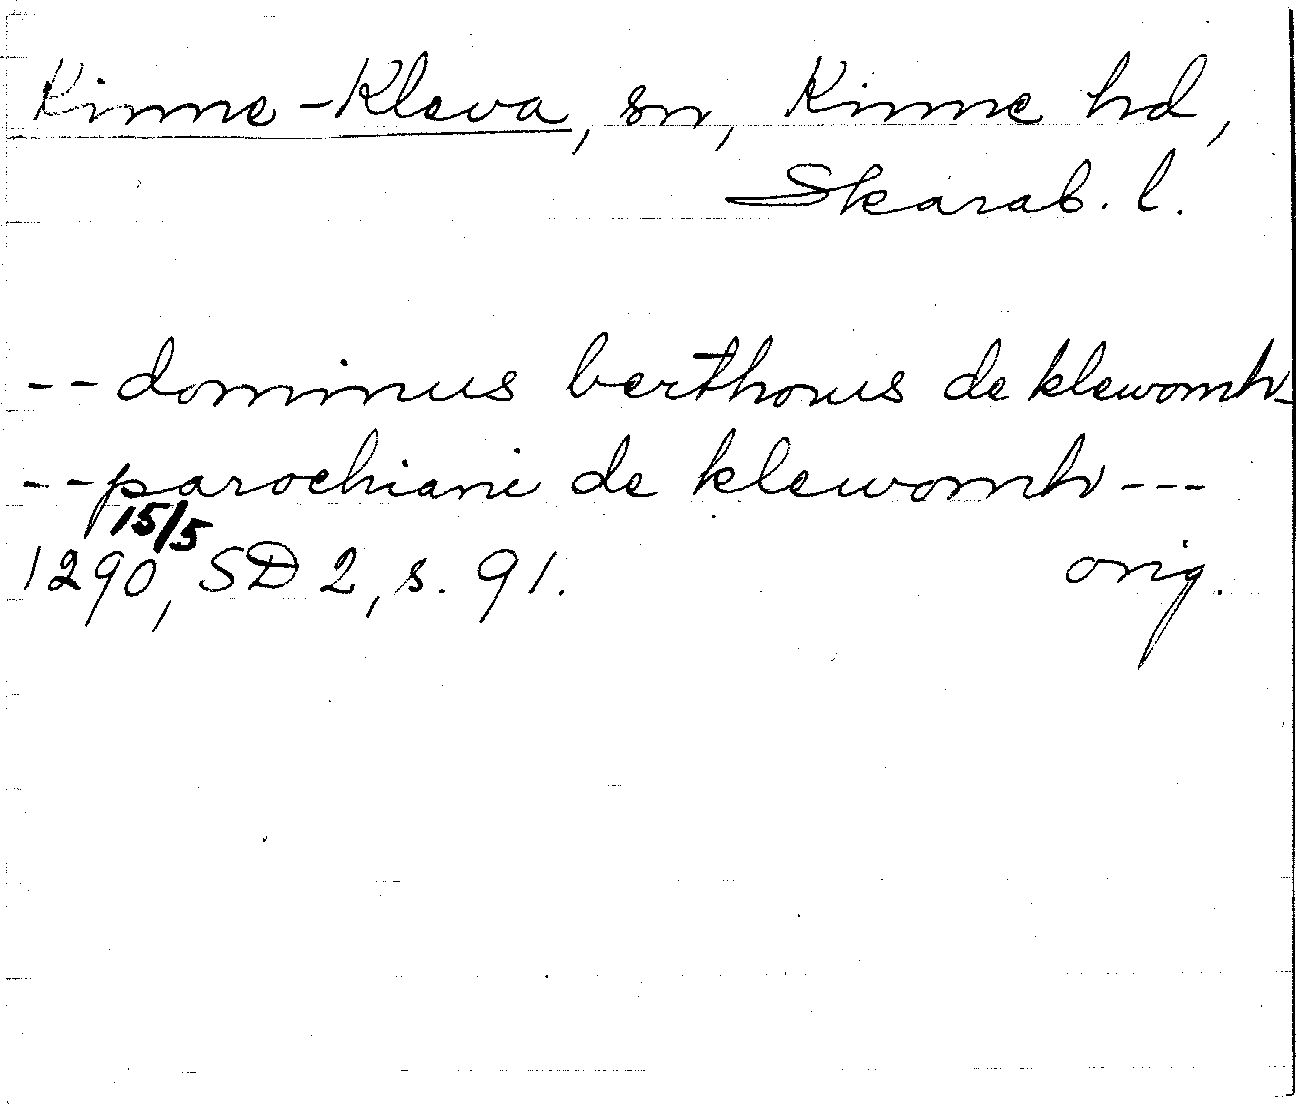 Kinne-Kleva, sn, Kinne hd,
Skarab. l.
-- dominus berthorus de klewomh-
-- parochiani de klewomh ---
15/5
1290, SD 2, s. 91. orig.